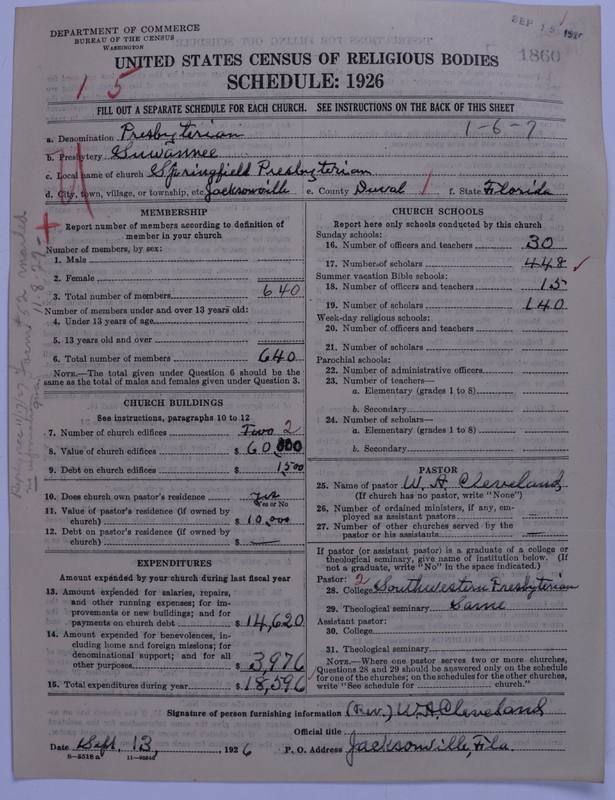 DEPARTMENT OF COMMERCE
BUREAU OF THE CENSUS
WASHINGTON
SEP 15 1926
1860
UNITED STATES CENSUS OF RELIGIOUS BODIES
SCHEDULE: 1926
1 5
FILL OUT A SEPARATE SCHEDULE FOR EACH CHURCH. SEE INSTRUCTIONS ON THE BACK OF THIS SHEET
a. Denomination Presbyterian 1-6-7
b. Presbytery Suwannee
c. Local name of church Springfield Presbyterian
d. City, town, village, or township, etc. Jacksonville e. County Duval f. State Florida
MEMBERSHIP
Report number of members according to definition of
member in your church
Number of members, by sex:
1. Male
2. Female
3. Total number of members 640
Number of members under and over 13 years old:
4. Under 13 years of age
5. 13 years old and over
6. Total number of members 640
NOTE.—The total given under Question 6 should be the
same as the total of males and females given under Question 3.
CHURCH BUILDINGS
See instructions, paragraphs 10 to 12
7. Number of church edifices Two 2
8. Value of church edifices $ 60,000
9. Debt on church edifices $ 1500
10. Does church own pastor's residence yes
Yes or No
11. Value of pastor's residence (if owned by
church) $ 10,000
12. Debt on pastor's residence (if owned by
church) $ —
EXPENDITURES
Amount expended by your church during last fiscal year
13. Amount expended for salaries, repairs,
and other running expenses; for im-
provements or new buildings; and for
payments on church debt $ 14,620
14. Amount expended for benevolences, in-
cluding home and foreign missions; for
denominational support; and for all
other purposes $ 3,976
15. Total expenditures during year $ 18,596
CHURCH SCHOOLS
Report here only schools conducted by this church
Sunday schools:
16. Number of officers and teachers 30
17. Number of scholars 448
Summer vacation Bible schools:
18. Number of officers and teachers 15
19. Number of scholars 140
Week-day religious schools:
20. Number of officers and teachers
21. Number of scholars
Parochial schools:
22. Number of administrative officers
23. Number of teachers—
a. Elementary (grades 1 to 8)
b. Secondary
24. Number of scholars—
a. Elementary (grades 1 to 8)
b. Secondary
PASTOR
25. Name of pastor W. H. Cleveland
(If church has no pastor, write "None")
26. Number of ordained ministers, if any, em-
ployed as assistant pastors —
27. Number of other churches served by the
pastor or his assistants —
If pastor (or assistant pastor) is a graduate of a college or
theological seminary, give name of institution below. (If
not a graduate, write "No" in the space indicated.)
Pastor: 2
28. College Southwestern Presbyterian
29. Theological seminary Same
Assistant pastor:
30. College
31. Theological seminary
NOTE.—Where one pastor serves two or more churches,
Questions 28 and 29 should be answered only on the schedule
for one of the churches; on the schedules for the other churches,
write "See schedule for church."
Signature of person furnishing information (Rev.) W. H. Cleveland
Official title
Date Sept. 13, 1926 P. O. Address Jacksonville, Fla
8—5518 a 11—9204